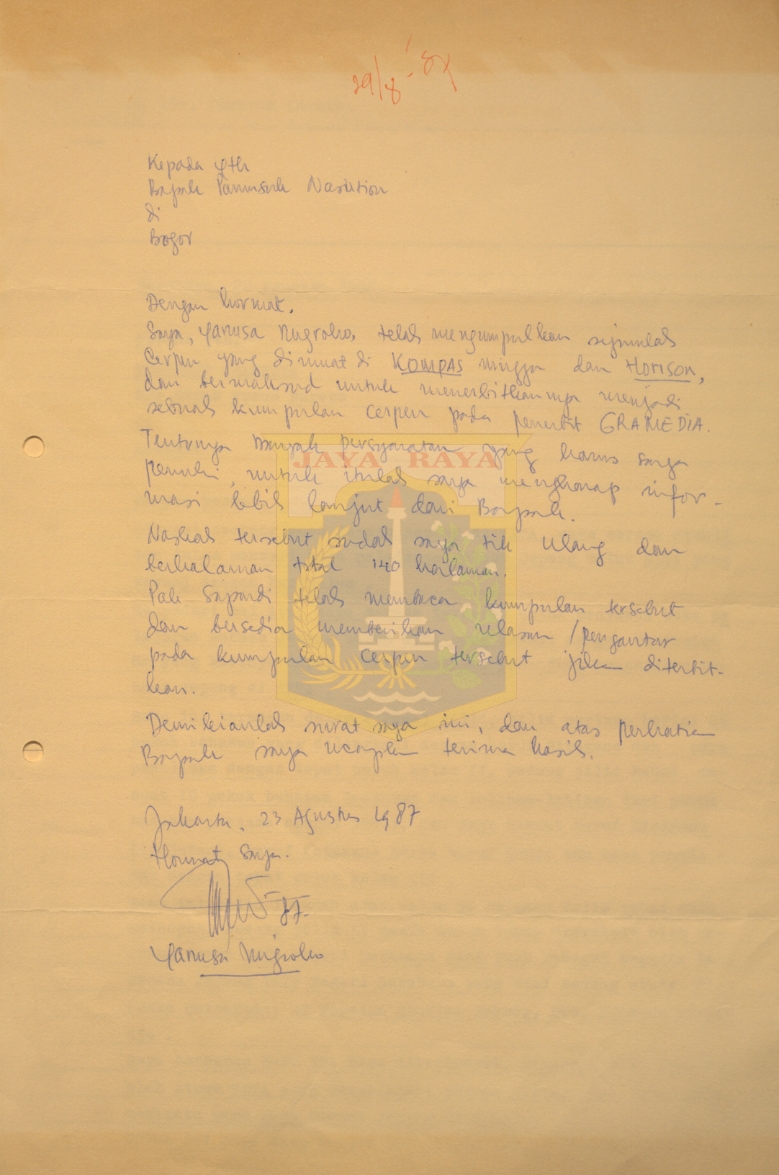 29/8 '87
Kepada yth
Bapak Pamusuk Nasution
di
Bogor
Dengan hormat,
Saya, Yanusa Nugroho, telah mengumpulkan sejumlah
Cerpen yang dimuat di KOMPAS minggu dan HORISON,
dan bermaksud untuk menerbitkannya menjadi
sebuah kumpulan cerpen pada penerbit GRAMEDIA.
Tentunya banyak persyaratan yang harus saya
penuhi, untuk itulah saya mengharap infor-
masi lebih lanjut dari Bapak.
JAYA RAYA
Naskah tersebut sudah saya tik ulang dan
berhalaman total 140 halaman.
Pak Sapardi telah membaca kumpulan tersebut
dan bersedia memberikan ulasan / pengantar
pada kumpulan cerpen tersebut jika diterbit-
kan.
Demikianlah surat saya ini, dan atas perhatian
Bapak saya ucapkan terima kasih.
Jakarta, 23 Agustus 1987
Hormat Saya.
Yanusa Nugroho